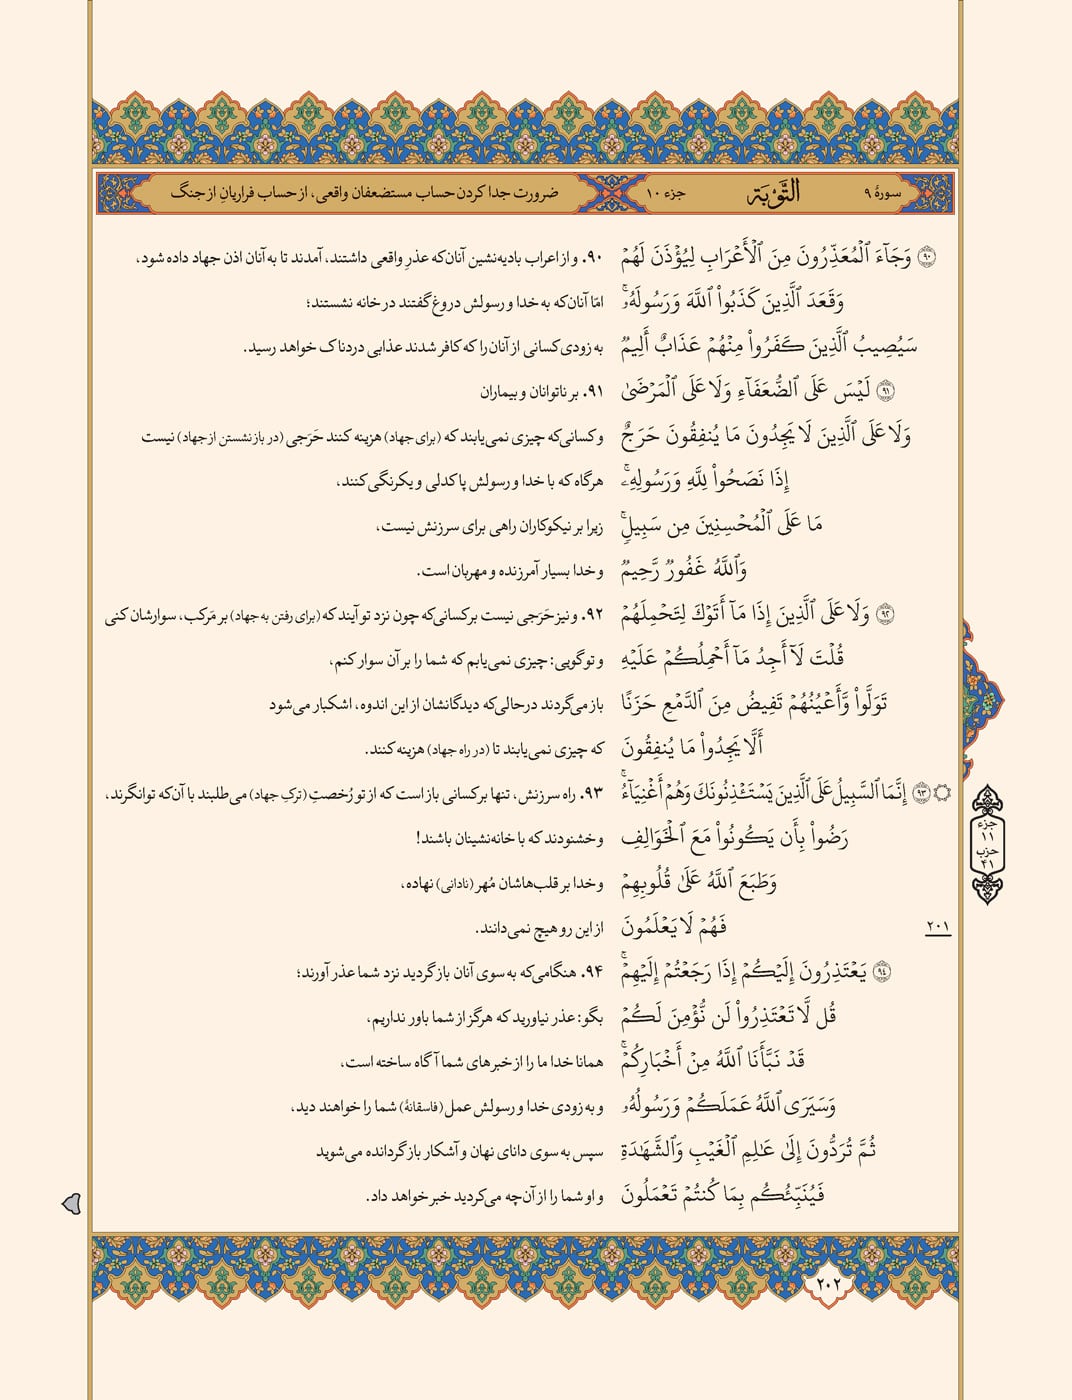 سورهٔ ۹ التَّوْبَة جزء ۱۰ ضرورت جدا کردن حساب مستضعفان واقعی، از حساب فراریانِ از جنگ
۹۰ وَجَآءَ ٱلۡمُعَذِّرُونَ مِنَ ٱلۡأَعۡرَابِ لِيُؤۡذَنَ لَهُمۡ ۹۰. و از اعراب بادیه‌نشین آنان‌که عذرِ واقعی داشتند، آمدند تا به آنان اذن جهاد داده شود،
وَقَعَدَ ٱلَّذِينَ كَذَبُواْ ٱللَّهَ وَرَسُولَهُۥۚ امّا آنان‌که به خدا و رسولش دروغ گفتند در خانه نشستند؛
سَيُصِيبُ ٱلَّذِينَ كَفَرُواْ مِنۡهُمۡ عَذَابٌ أَلِيمٞ به زودی کسانی از آنان را که کافر شدند عذابی دردناک خواهد رسید.
۹۱ لَّيۡسَ عَلَى ٱلضُّعَفَآءِ وَلَا عَلَى ٱلۡمَرۡضَىٰ ۹۱. بر ناتوانان و بیماران
وَلَا عَلَى ٱلَّذِينَ لَا يَجِدُونَ مَا يُنفِقُونَ حَرَجٌ و کسانی‌که چیزی نمی‌یابند که (برای جهاد) هزینه کنند حَرَجی (در بازنشستن از جهاد) نیست
إِذَا نَصَحُواْ لِلَّهِ وَرَسُولِهِۦۚ هرگاه که با خدا و رسولش پاکدلی و یکرنگی کنند،
مَا عَلَى ٱلۡمُحۡسِنِينَ مِن سَبِيلٖۚ زیرا بر نیکوکاران راهی برای سرزنش نیست،
وَٱللَّهُ غَفُورٞ رَّحِيمٞ و خدا بسیار آمرزنده و مهربان است.
۹۲ وَلَا عَلَى ٱلَّذِينَ إِذَا مَآ أَتَوۡكَ لِتَحۡمِلَهُمۡ ۹۲. و نیز حَرَجی نیست بر کسانی‌که چون نزد تو آیند که (برای رفتن به جهاد) بر مَرکب، سوارشان کنی
قُلۡتَ لَآ أَجِدُ مَآ أَحۡمِلُكُمۡ عَلَيۡهِ و تو گویی: چیزی نمی‌یابم که شما را بر آن سوار کنم،
تَوَلَّواْ وَّأَعۡيُنُهُمۡ تَفِيضُ مِنَ ٱلدَّمۡعِ حَزَنًا باز می‌گردند درحالی‌که دیدگانشان از این اندوه، اشکبار می‌شود
أَلَّا يَجِدُواْ مَا يُنفِقُونَ که چیزی نمی‌یابند تا (در راه جهاد) هزینه کنند.
۹۳ إِنَّمَا ٱلسَّبِيلُ عَلَى ٱلَّذِينَ يَسۡتَـٔۡذِنُونَكَ وَهُمۡ أَغۡنِيَآءُۚ ۹۳. راه سرزنش، تنها بر کسانی باز است که از تو رُخصتِ (ترکِ جهاد) می‌طلبند با آن‌که توانگرند،
رَضُواْ بِأَن يَكُونُواْ مَعَ ٱلۡخَوَالِفِ و خشنودند که با خانه‌نشینان باشند!
جزء
۱۱
حزب
۴۱
وَطَبَعَ ٱللَّهُ عَلَىٰ قُلُوبِهِمۡ و خدا بر قلب‌هاشان مُهر (نادانی) نهاده،
۲۰۱ فَهُمۡ لَا يَعۡلَمُونَ از این رو هیچ نمی‌دانند.
۹۴ يَعۡتَذِرُونَ إِلَيۡكُمۡ إِذَا رَجَعۡتُمۡ إِلَيۡهِمۡۚ ۹۴. هنگامی‌که به سوی آنان بازگردید نزد شما عذر آورند؛
قُل لَّا تَعۡتَذِرُواْ لَن نُّؤۡمِنَ لَكُمۡ بگو: عذر نیاورید که هرگز از شما باور نداریم،
قَدۡ نَبَّأَنَا ٱللَّهُ مِنۡ أَخۡبَارِكُمۡۚ همانا خدا ما را از خبرهای شما آگاه ساخته است،
وَسَيَرَى ٱللَّهُ عَمَلَكُمۡ وَرَسُولُهُۥ و به زودی خدا و رسولش عمل (فاسقانهٔ) شما را خواهند دید،
ثُمَّ تُرَدُّونَ إِلَىٰ عَٰلِمِ ٱلۡغَيۡبِ وَٱلشَّهَٰدَةِ سپس به سوی دانای نهان و آشکار بازگردانده می‌شوید
فَيُنَبِّئُكُم بِمَا كُنتُمۡ تَعۡمَلُونَ و او شما را از آن‌چه می‌کردید خبر خواهد داد.
۲۰۲